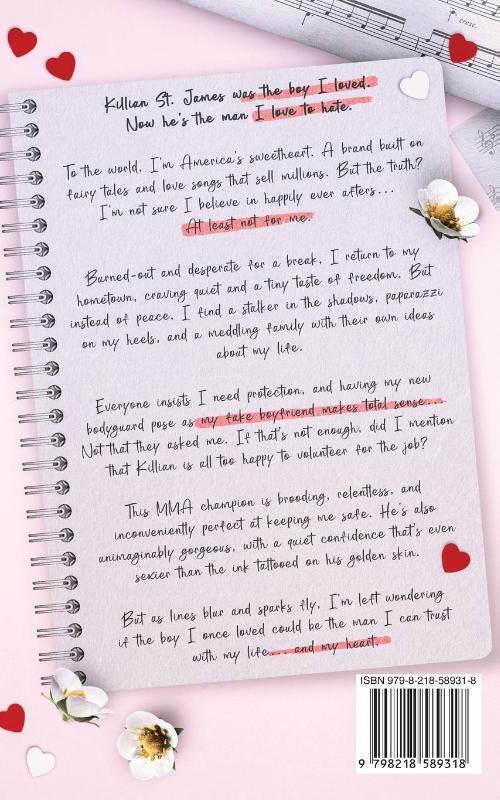 cresc.
Killian St. James was the boy I loved.
Now he's the man I love to hate.
To the world, I'm America's sweetheart. A brand built on
fairy tales and love songs that sell millions. But the truth?
I'm not sure I believe in happily ever afters...
At least not for me.
Burned-out and desperate for a break, I return to my
hometown, craving quiet and a tiny taste of freedom. But
instead of peace, I find a stalker in the shadows, paparazzi
on my heels, and a meddling family with their own ideas
about my life.
Everyone insists I need protection, and having my new
bodyguard pose as my fake boyfriend makes total sense...
Not that they asked me. If that's not enough, did I mention
that Killian is all too happy to volunteer for the job?
This MMA champion is brooding, relentless, and
inconveniently perfect at keeping me safe. He's also
unimaginably gorgeous, with a quiet confidence that's even
sexier than the ink tattooed on his golden skin.
But as lines blur and sparks fly, I'm left wondering
if the boy I once loved could be the man I can trust
with my life.... and my heart.
ISBN 979-8-218-58931-8
9 798218 589318